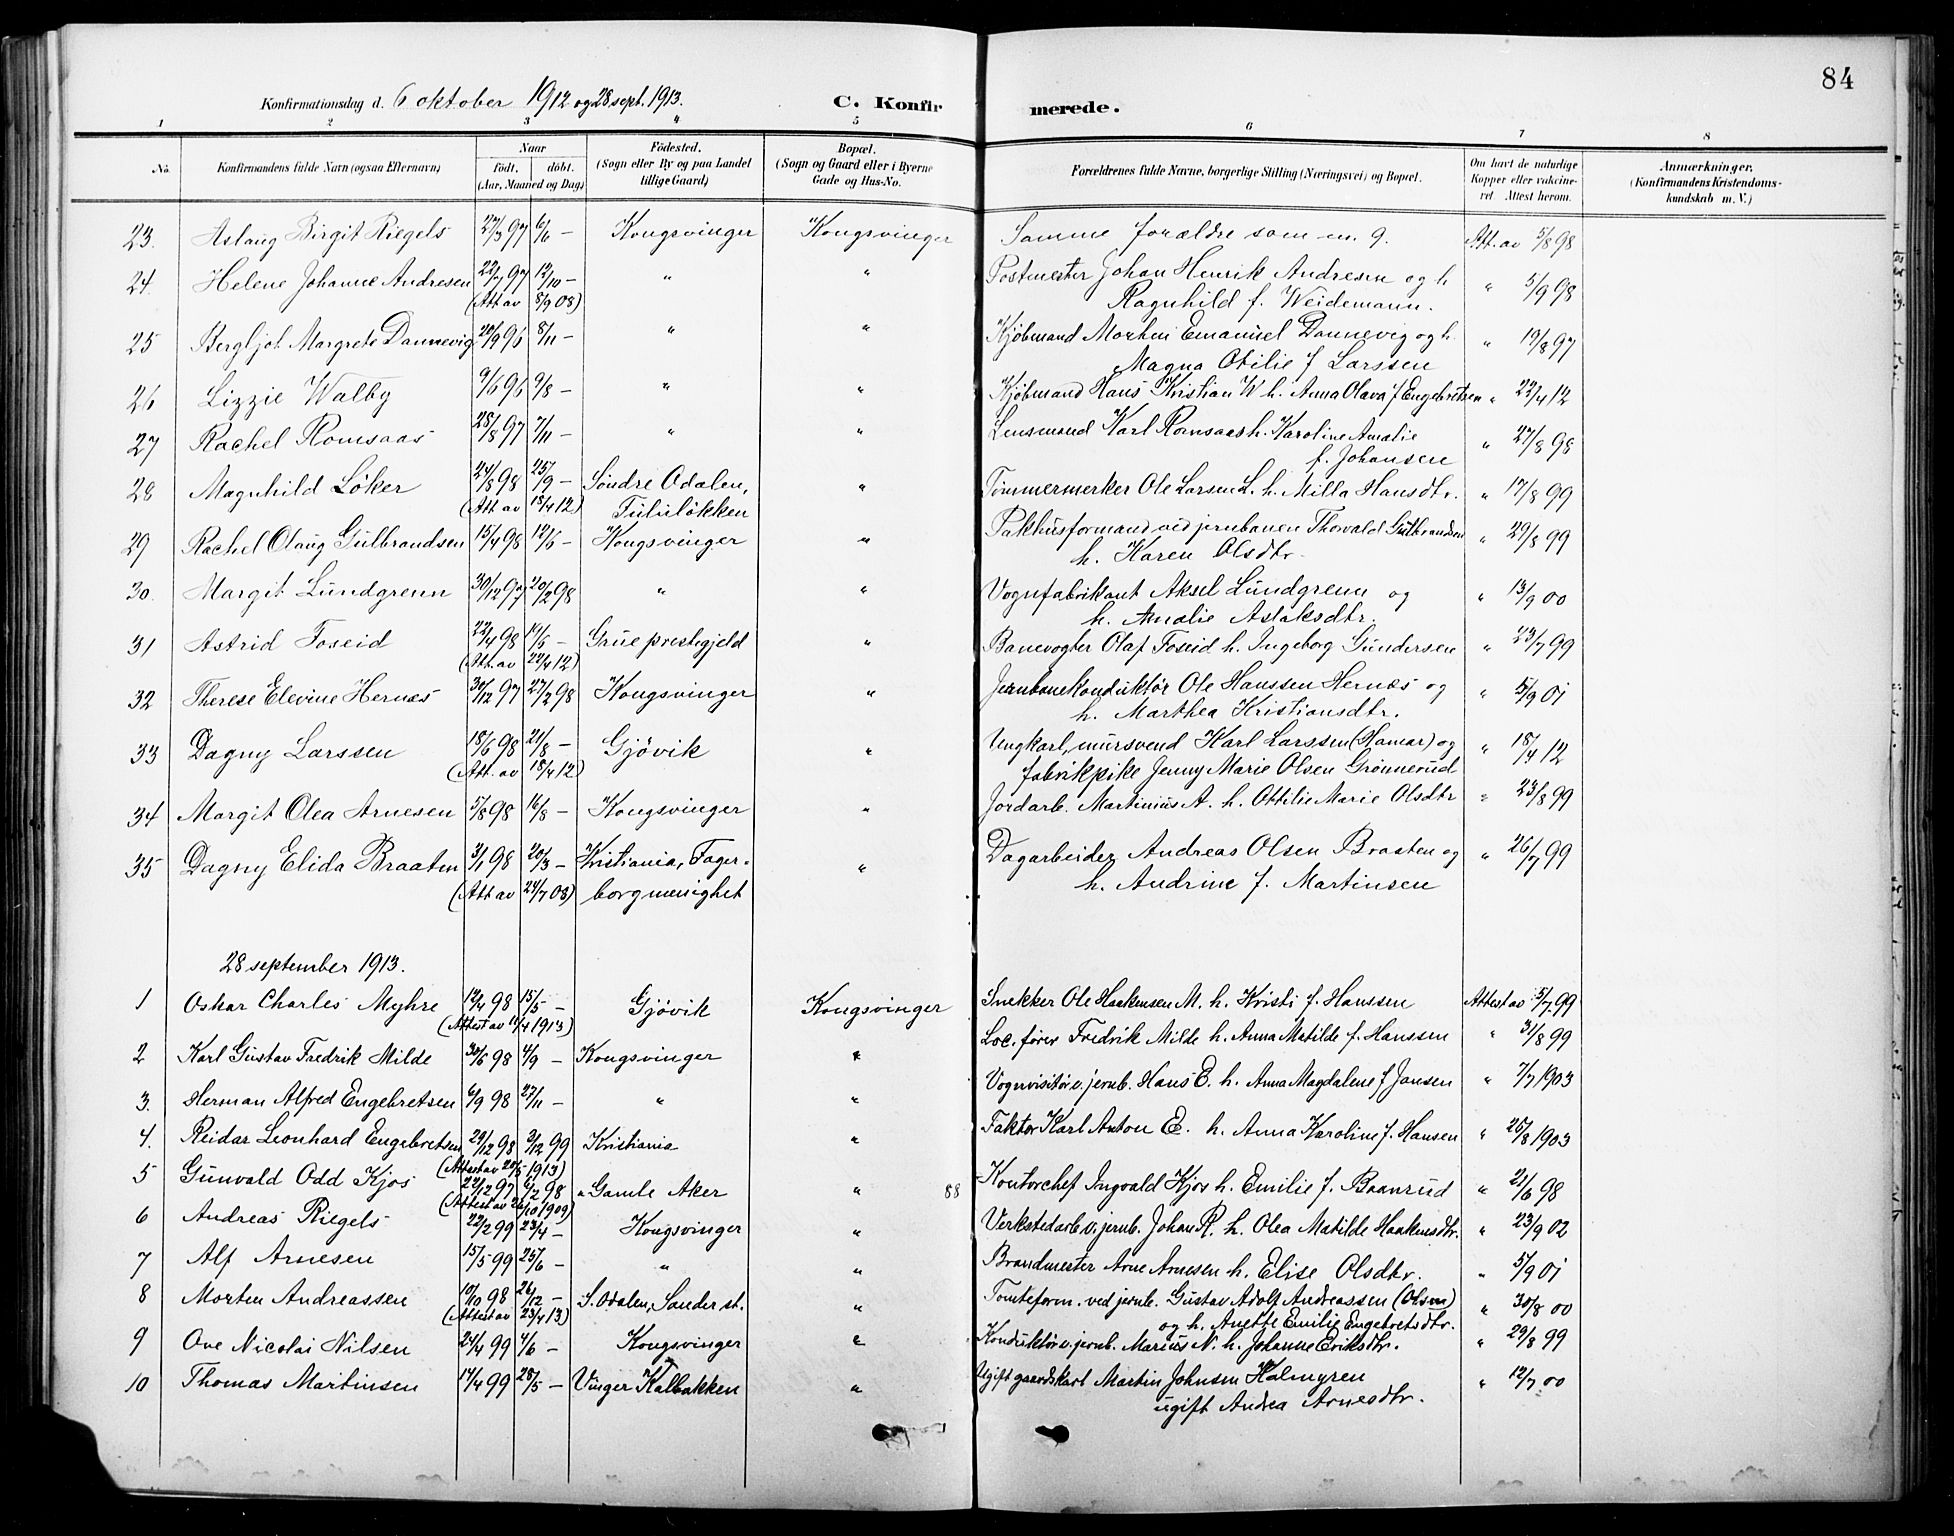 84
Konfirmationsdag d. 6 oktober 1912 og 28 sept. 1913.
C. Konfirmerede.
1 2 3 4 5 6 7 8
No. Konfirmandens fulde Navn (ogsaa Efternavn) Naar Födt. döbt. (Aar, Maaned og Dag) Födested. (Sogn eller By og paa Landet tillige Gaard) Bopæl. (Sogn og Gaard eller i Byerne Gade og Hus-No. Forældrenes fulde Navne, borgerlige Stilling (Næringsvei) og Bopæl. Om havt de naturlige Kopper eller vakcineret. Attest herom. Anmærkninger. (Konfirmandens Kristendomskundskab m. V.)
23. Aslaug Birgit Riegels 27/3 97 6/6 – Kongsvinger Kongsvinger Samme forældre som n. 9. Att. av 5/8 98
24. Helene Johanne Andresen 22/7 97 12/10 – " " Postmester Johan Henrik Andresen og h. " 5/9 98
(Att av 8/9 08) Ragnhild f. Weidemann.
25 Bergljot Margrete Dannevig 20/9 96 8/11 – " " Kjöbmand Morten Emanuel Dannevig og h. " 19/8 97
Magna Otilie f Larssen
26 Lizzie Walby 9/6 96 9/8 – " " Kjöbmand Hans Kristian W h. Anna Olava f Engebretsen " 22/4 12
27 Rachel Romsaas 28/8 97 7/11 – " " Lensmand Karl Romsaas h. Karoline Amalie " 27/8 98
f. Johansen
28 Magnhild Löker 24/8 98 25/9 – Söndre Odalen, " Tömmermerker Ole Larsen L. h. Milla Hansdtr. " 17/8 99
(Att av 18/4 12)
29 Rachel Olaug Gulbrandsen 15/4 98 12/6 – Kongsvinger " Pakhusformand ved jernbanen Thorvald Gulbrandsen " 29/8 99
h. Karen Olsdtr.
30. Margit Lundgrenn 30/12 97 20/2 98 " " Vognfabrikant Aksel Lundgrenn og " 13/9 00
h. Amalie Aslaksdtr.
31 Astrid Foseid 22/4 98 19/6 – Grue prestegjeld " Banevogter Olaf Foseid h. Ingeborg Gundersen " 23/7 99
(Att. av 22/4 12)
32 Therese Elevine Hernes 30/12 97 27/2 98 Kongsvinger " Jernbanekonduktör Ole Hanssen Hernes og " 5/9 01
h. Marthea Kristiansdtr.
33 Dagny Larssen 18/6 98 21/8 – Gjövik " Ungkarl, mursvend Karl Larssen (Hamar) og " 18/4 12
(Att. av 18/4 12) fabrikpike Jenny Marie Olsen Grönnerud
34 Margit Olea Arnesen 5/8 98 16/8 – Kongsvinger " Jordarb. Martinius A. h. Ottilie Marie Olsdtr " 23/8 99
35 Dagny Elida Braaten 3/1 98 20/3 – Kristiania, Fager- " Dagarbeider Andreas Olsen Braaten og " 26/7 99
(Att av 24/7 08) borg menighet h. Andrine f. Martinsen
28 september 1913.
1 Oskar Charles Myhre 12/4 98 15/5 – Gjövik Kongsvinger Snekker Ole Haakensen M. h. Kristi f. Hanssen Attest av 5/7 99
(Attest av 11/4 1913)
2 Karl Gustav Fredrik Milde 30/6 98 4/9 – Kongsvinger " Loc. förer Fredrik Milde h. Anna Matilde f. Hanssen " 31/8 99
3. Herman Alfred Engebretsen 6/9 98 27/11 – " " Vognvisitör v. jernb. Hans E. h. Anna Magdalene f Jansen " 7/7 1903
4. Reidar Leonhard Engebretsen 29/12 98 3/12 99 Kristiania " Faktor Karl Anton E. h. Anna Karoline f. Hansen " 25/8 1903
(Attest av 20/5 1913)
5 Gunvald Odd Kjos 22/12 97 6/2 98 " Gamle Aker " 88 Kontorchef Ingvald Kjos h. Emilie f. Baanrud " 21/6 98
(Attest av 26/10 1909)
6 Andreas Riegels 22/2 99 23/4 – Kongsvinger " Verkstedarb. v. jernb. Johan R. h. Olea Matilde Haakensdtr. " 23/9 02
7 Alf Arnesen 15/5 99 25/6 – " " Brandmester Arne Arnesen h. Elise Olsdtr. " 5/9 01
8 Morten Andreassen 10/10 98 26/12 – S. Odalen, Sander st. " Tomteform. ved jernb. Gustav Adolf Andreassen (Olsen) " 30/8 00
(Attest av 23/4 13) og h. Anette Emilie Engebretsdtr.
9 Ove Nicolai Nilsen 24/4 99 4/6 – Kongsvinger " Konduktör v. jernb. Marius N. h. Johanne Eriksdtr. " 29/8 99
10 Thomas Martinsen 17/4 99 28/5 – Vinger Kalbakken " Ugift gaardskarl Martin Johnsen Holmyren " 12/7 00
ugift Andrea Arnesdtr.